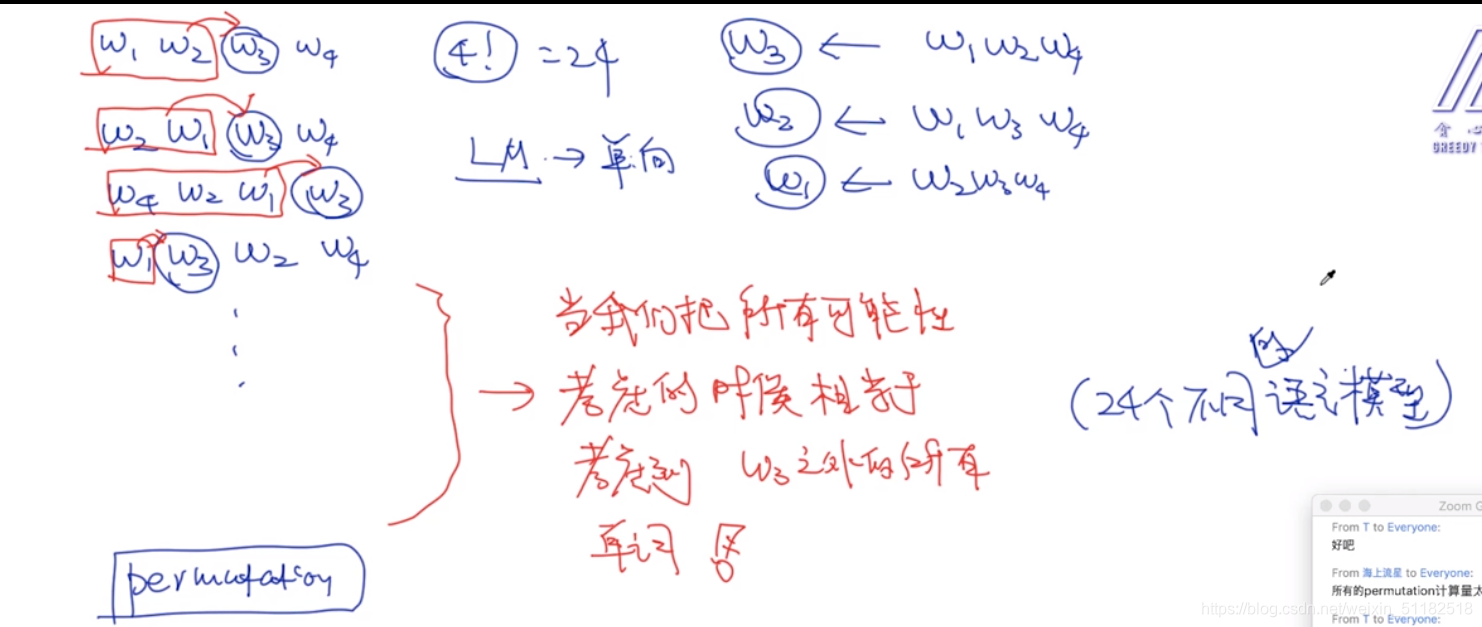 w₁ w₂ w₃ w₄
w₂ w₁ w₃ w₄
w₄ w₂ w₁ w₃
w₁ w₃ w₂ w₄
4! = 24
LM → 单向
w₃ ← w₁ w₂ w₄
w₂ ← w₁ w₃ w₄
w₁ ← w₂ w₃ w₄
→ 当我们把所有可能性
考虑的时候相当于
考虑到 w₃之外的所有
单词
(24个不同的语言模型)
permutation
贪心
GREEDY
Zoom G
From T to Everyone:
好吧
From 海上流星 to Everyone:
所有的permutation计算量太
From T to Everyone:
https://blog.csdn.net/weixin_51182518